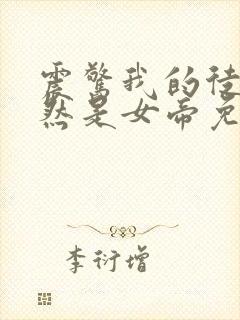 震惊我的徒
然是女帝免
李衍增